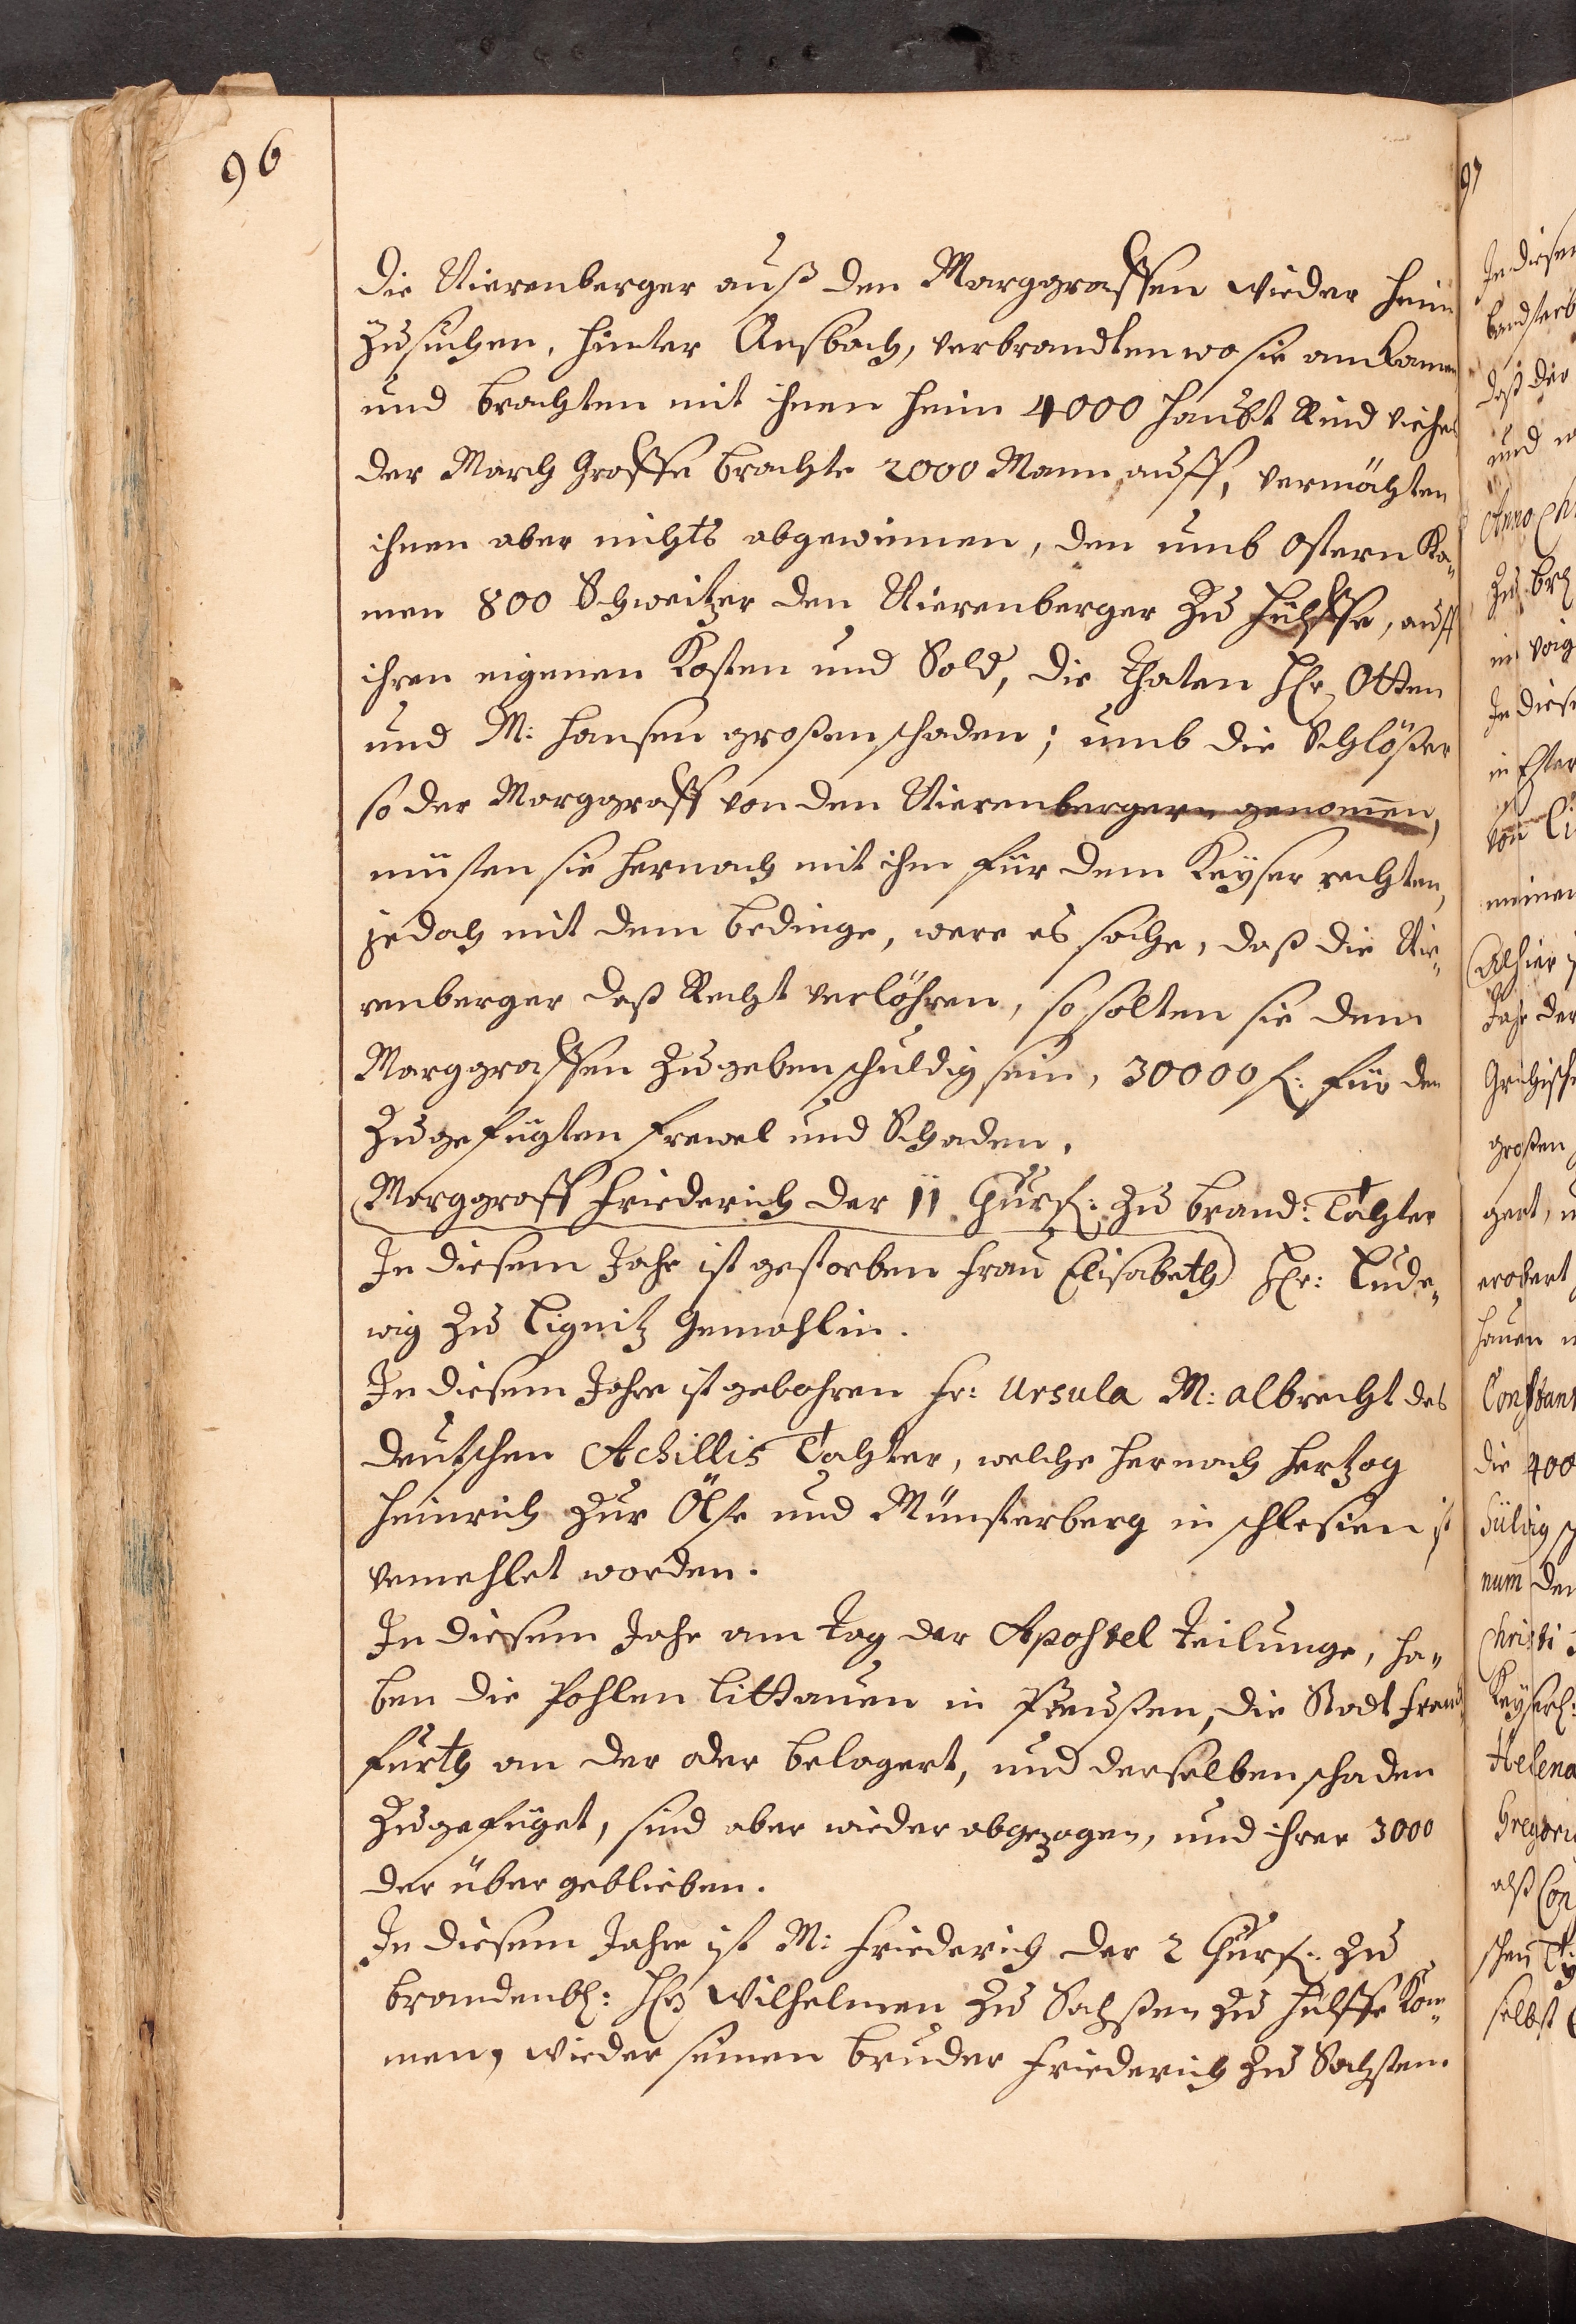 96
die Nierenberger auß den Marggraffen wieder heim
zusuchen, hinter Ansbach, verbrandten wo sie ankamen
und brachten mit ihnen heim 4000 haubt Rind viehes
der March Graffe brachte 2000 Mann auff, vermöchten
ihnen aber nichts abgewinnen, den umb Ostern Ka-
men 800 Schweitzer den Nierenberger zu hülffe, auff
ihren eigenen Kosten und Sold, die thaten H. Otten
und M: Hansen großen schaden; umb die Schlößer
so der Marggraff von den Nierenbergern genomen,
müsten sie hernach mit ihm für dem Keyser rechten,
jedoch mit dem bedinge, were es sache, daß die Nie-
renberger deß Recht verlöhren, so solten sie dem
Marggraffen zugeben schuldig sein, 30000 f: für den
zugefügten frewel und Schaden.
Marggraff Friederich der II Churf: zu brand: Tochter
In diesem Jahr ist gestorben frau Elisabeth H: Lude-
wig zu Lignitz Gemahlin.
In diesem Jahre ist gebohren fr: Ursula M: Albrecht des
deutschen Achillis Tochter, welche hernach Hertzog
Heinrich zur Ölse und Münsterberg in schlesien ist
vemehlet worden.
In diesem Jahr am tag der Apostel teilunge, ha-
ben die Pohlen Littauen in Preußen, die Stadt franck
furth an der oder belagert, und derselben schaden
zugefüget, sind aber wieder abgezogen, und ihrer 3000
der über geblieben.
In diesem Jahre ist M: Friederich der 2 Churf: zu
brandenb: H Wilhelmen zu Sachßen zu hülffe Kom-
men, wieder seinen bruder Friederich zu Sachsten.
97
In diesen
daß der
und
Anno
zu
In diese
von
meinen
Alhier
Jahr der
großen
gert,
erobert
hauen
die 400
num den
Christi
Helena
alß
selbst